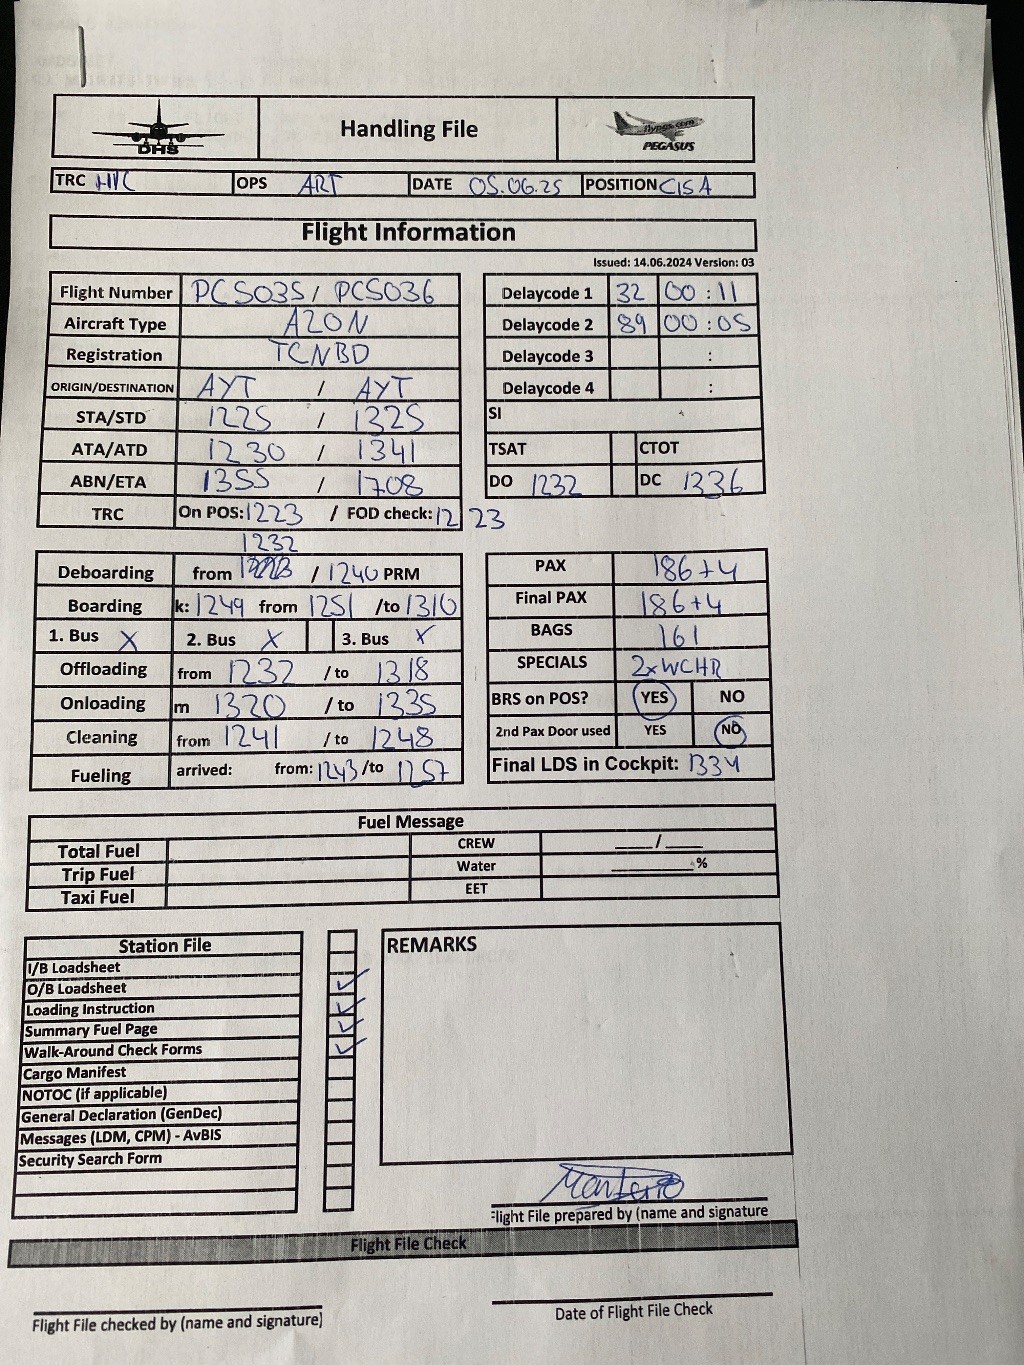 DHS
Handling File
flypgs.com
PEGASUS
TRC HVC OPS ART DATE 05.06.25 POSITION C15A
Flight Information
Issued: 14.06.2024 Version: 03
Flight Number PC5035 / PC5036
Aircraft Type A20N
Registration TCNBD
ORIGIN/DESTINATION AYT / AYT
STA/STD 1225 / 1325
ATA/ATD 1230 / 1341
ABN/ETA 1355 / 1708
TRC On POS: 1223 / FOD check: 1223
Delaycode 1 32 00 : 11
Delaycode 2 89 00 : 05
Delaycode 3 :
Delaycode 4 :
SI
TSAT CTOT
DO 1232 DC 1336
1232
Deboarding from / 1240 PRM
Boarding k: 1249 from 1251 /to 1310
1. Bus X 2. Bus X 3. Bus X
Offloading from 1232 / to 1318
Onloading m 1320 / to 1335
Cleaning from 1241 / to 1248
Fueling arrived: from: 1243 /to 1257
PAX 186+4
Final PAX 186+4
BAGS 161
SPECIALS 2xWCHR
BRS on POS? YES NO
2nd Pax Door used YES NO
Final LDS in Cockpit: 1334
Fuel Message
Total Fuel CREW ____/____
Trip Fuel Water ________%
Taxi Fuel EET
Station File
I/B Loadsheet
O/B Loadsheet ✓
Loading Instruction ✓
Summary Fuel Page ✓
Walk-Around Check Forms ✓
Cargo Manifest
NOTOC (if applicable)
General Declaration (GenDec)
Messages (LDM, CPM) - AvBIS
Security Search Form
REMARKS
Flight File prepared by (name and signature
Flight File Check
Flight File checked by (name and signature)
Date of Flight File Check